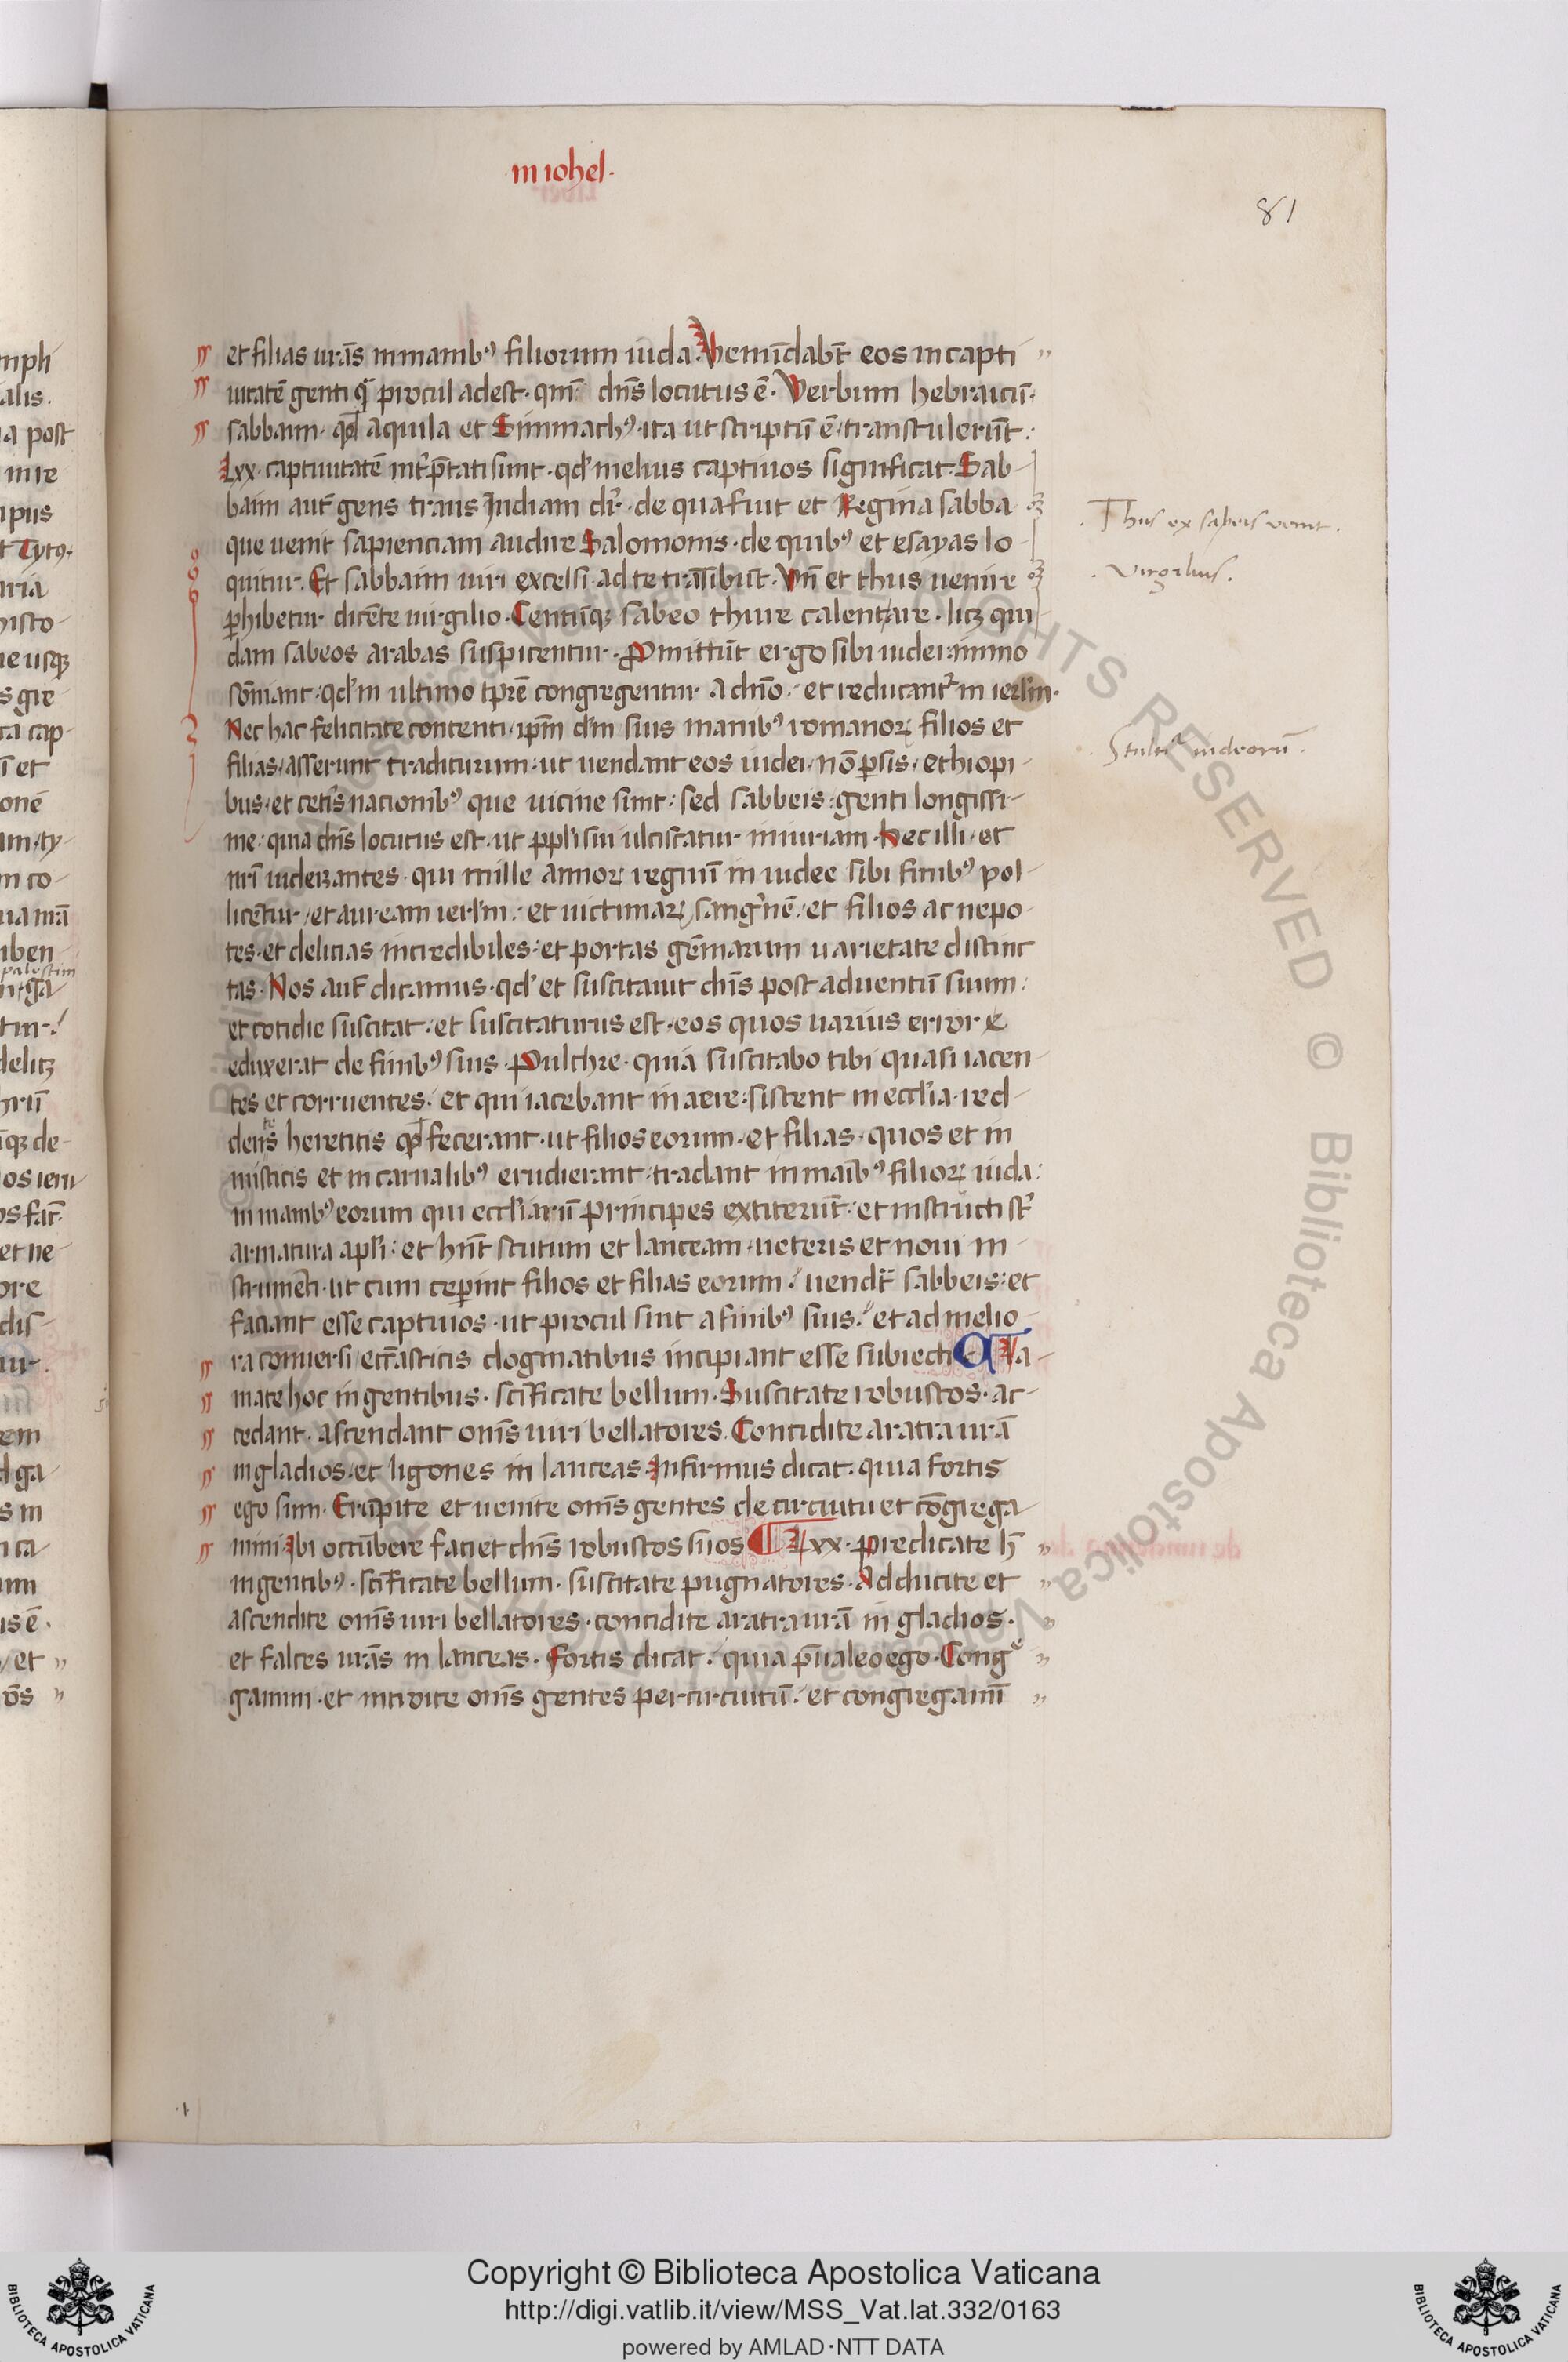 in iohel·
81
et filias ur̄as in manib⁹ filiorum iuda. Venūdabt̄ eos in capti
uitatē genti q̄ procul adest· qm̄ dn̄s locutus ē· Verbum hebraicū·
sabbaim· qd̄ aquila et Simmach⁹· ita ut scriptū ē· transtulerūt:
Lxx· captiuitatē int̄p̄tati sunt· qd̓ melius captiuos significat· Sab-
baim aut̄ gens trans Indiam dr̄· de qua fuit et Regina sabba·
que uenit sapienciam audire Salomonis· de quib⁹ et esayas lo-
quitur· Et sabbaim uiri excelsi· ad te trāsibūt· Vn̄ et thus uenire
ꝑhibetur· dicēte uirgilio· Centūqꝫ sabeo thure calent are· licꝫ qui-
dam sabeos arabas suspicentur· Ꝓmittūt ergo sibi iudei: immo
sōmiant· qd̓ in ultimo tp̄re congregentur a dn̄o· et reducant̄ in ierl̓m·
Nec hac felicitate contenti· ip̄m d̄m suis manib⁹ romanoꝝ filios et
filias· asserunt traditurum· ut uendant eos iudei· nō ꝑsis· ethiopi-
bus· et cet̄is nacionib⁹ que uicine sunt: sed sabbeis· genti longissi-
me: quia dn̄s locutus est· ut pp̄li sui ulciscatur iniuriam· Hec illi· et
nr̄i iudeizantes· qui mille annoꝝ regnū in iudee sibi finib⁹ pol-
licētur· et auream ierl̓m· et uictimaꝝ sang̓nē· et filios ac nepo-
tes· et delicias incredibiles: et portas gēmarum uarietate distinc
tas· Nos aut̄ dicamus· qd̓ et suscitauit dn̄s post aduentū suum:
et cotidie suscitat· et suscitaturus est· eos quos uarius error
eduxerat de finib⁹ suis· Pulchre· quia suscitabo tibi quasi iacen-
tes et corruentes· et qui iacebant in aere: sistent in eccl̓ia· red-
dens hereticis qd̄ fecerant· ut filios eorum· et filias· quos et in
misticis et in carnalib⁹ erudierant· tradant in maīb⁹ filioꝝ iuda:
in manib⁹ eorum qui eccl̓iarū principes extiterūt· et instructi st̄
armatura apl̓i: et hn̄t scutum et lanceam· ueteris et noui in-
strumēti· ut cum ceꝑint filios et filias eorum· uendt̄ sabbeis: et
faciant esse captiuos· ut procul sint a finib⁹ suis· et ad melio-
ra conuersi eccl̄asticis dogmatibus incipiant esse subiecti· Cla-
mate hoc in gentibus· sc̄ificate bellum· Suscitate robustos· ac-
cedant· ascendant om̄s uiri bellatores· Concidite aratra ur̄a
in gladios· et ligones in lanceas· Infirmus dicat· quia fortis
ego sum· Erūpite et uenite om̄s gentes de circuitu et cōgrega-
mini· Ibi occūbere faciet dn̄s robustos suos· Lxx· predicate h̄
in gentib⁹· sc̄ificate bellum· suscitate pugnatores· Adducite et
ascendite om̄s uiri bellatores· concidite aratra ur̄a in gladios·
et falces ur̄as in lanceas· Fortis dicat· quia p̄ualeo ego· Congᵉ
gamini· et introite om̄s gentes per circuitū· et congregamī
Thus ex sabeis venit·
Virgilius·
Stultitia iudeorū·
Copyright © Biblioteca Apostolica Vaticana
http://digi.vatlib.it/view/MSS_Vat.lat.332/0163
powered by AMLAD·NTT DATA